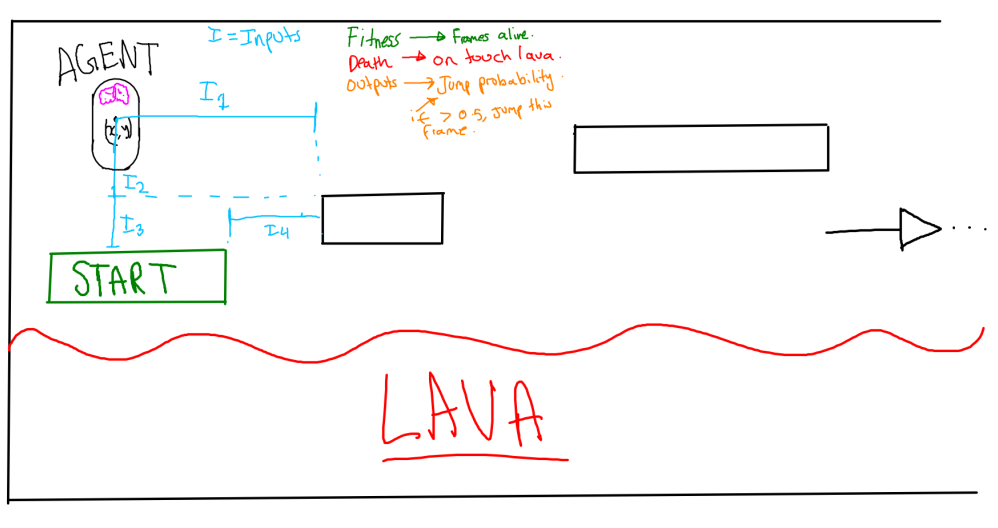 I = Inputs
Fitness → Frames alive.
Death → on touch lava.
Outputs → Jump probability.
if > 0.5, jump this
frame.
AGENT
I1
(x, y)
I2
I3
I4
START
LAVA